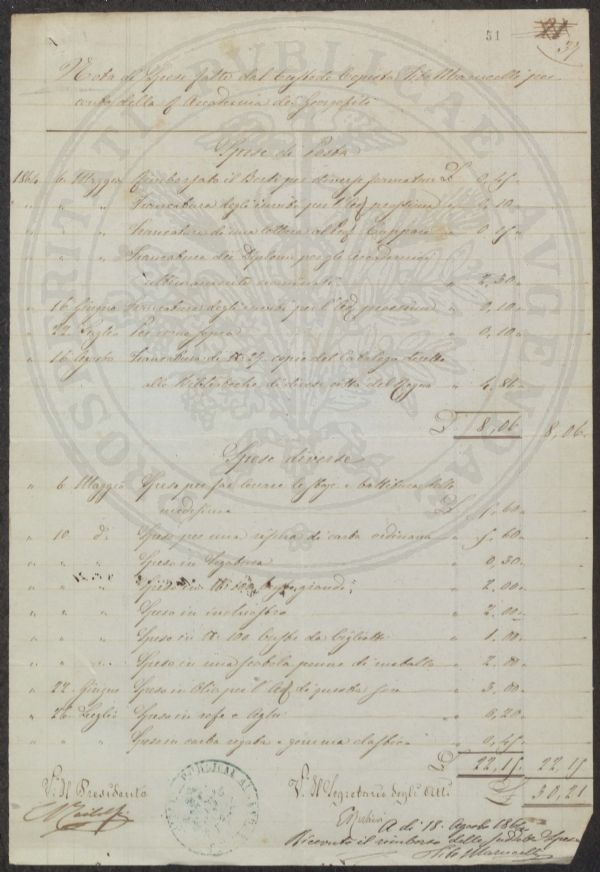 51
37
Nota di Spese fatte dal Custode Copista Tito Marucelli per
conto della R. Accademia dei Georgofili
Spese di Posta
1864 6 Maggio Rimborsato il £ 0,45
" " " Francatura degli inviti per l'Ad. prossima " 0,10
" " " Francatura di una lettera al Cuppari " 0,15
" " " Francatura dei Diplomi per gli Accademici
ultimamente nominati " 2,30
" 16 Giugno Francatura degli inviti per l'Ad. prossima " 0,10
" 22 Luglio Per come sopra " 0,10
" 16 Agosto Francatura di copie del Catalogo diretto
alle Biblioteche di diverse città del Regno " 4,86
£ 8,06 8,06
Spese diverse
" 6 Maggio Spesa per far levare le stoje e battitura delle
medesime £
" 10 d.° Spese per una risma di carta ordinaria "
" " " Spesa in legatura " 0,30
" " " Spesa in buste grandi " 2,00
" " " Spesa in inchiostro " 2,00
" " " Spesa in N 100 buste da biglietti " 1,00
" " " Spesa in una scatola penne di metallo " 2,00
" 22 Giugno Spesa in Olio per l'Ad. di questa sera " 3,00
" 26 Luglio Spesa in refe e aghi " 0,20
" " " Spesa in carta e gomma elastica " 0,45
£ 22,15 22,15
£ 30,21
V. Il Presidente
V. Il Segretario degli Atti
A di 18 Agosto 1864
Ricevuto il rimborso delle suddette Spese
Tito Marucelli
PROSPERITATI PUBLICAE AUGENDAE